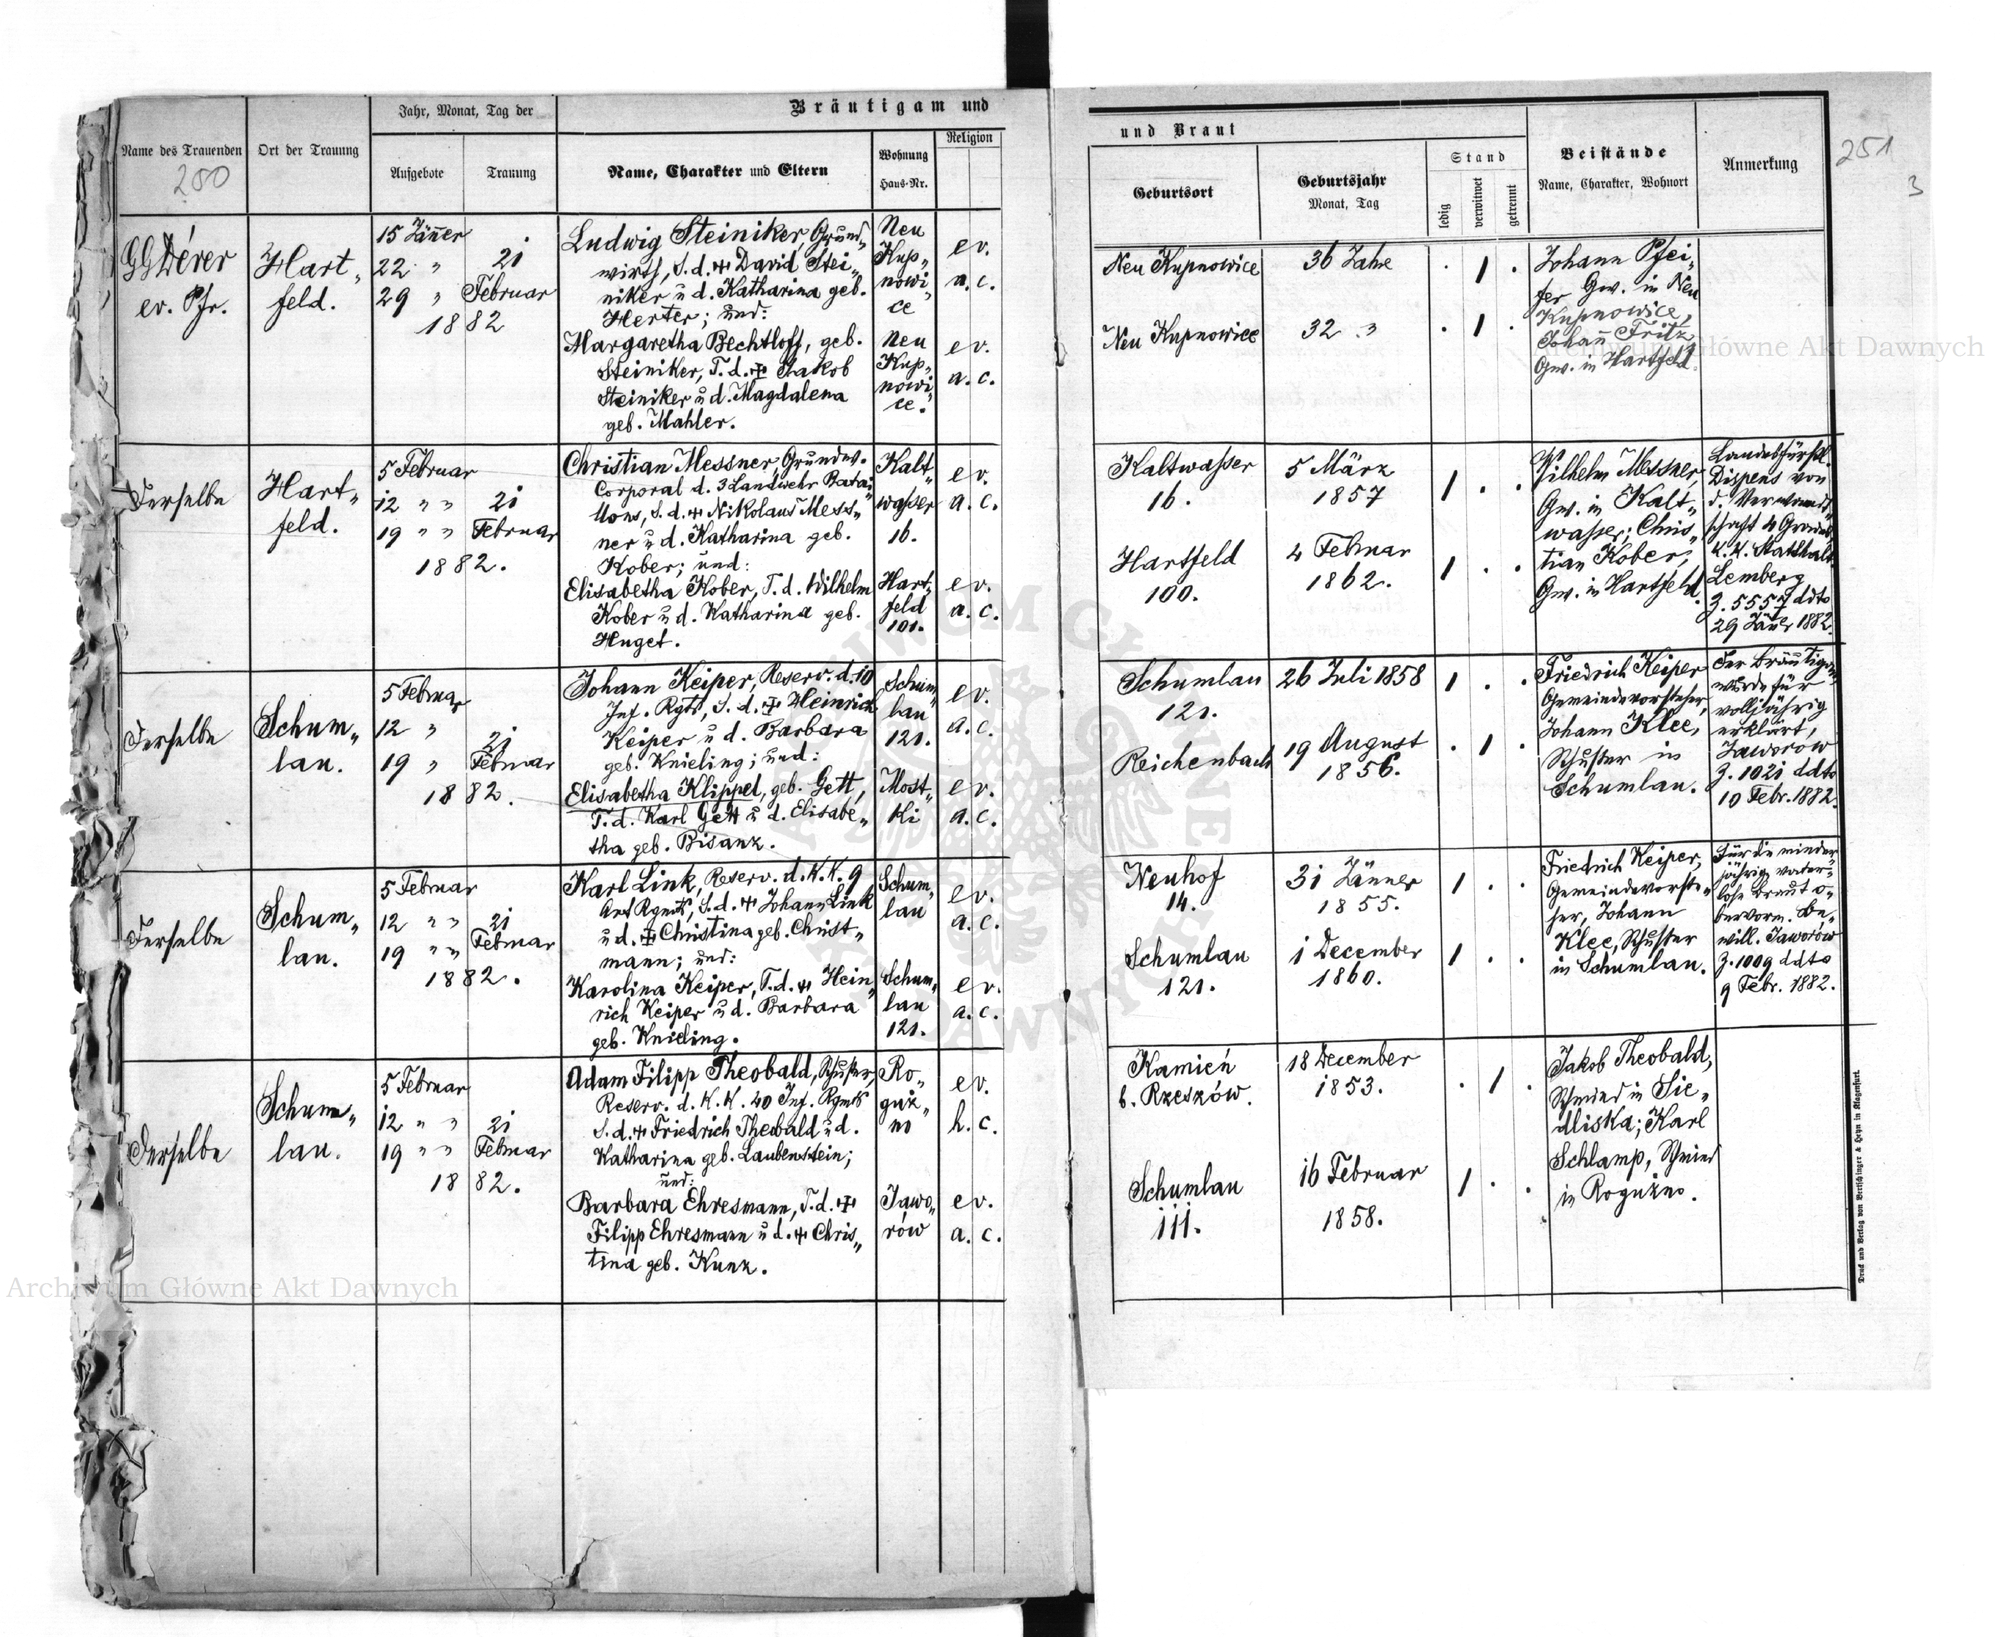 Jahr, Monat, Tag der
Bräutigam und
Name des Trauenden
Ort der Trauung
Aufgebote
Trauung
Name, Charakter und Eltern
Wohnung
Haus-Nr.
Religion
280
G G Dérer
ev. Pfr.
Hart„
feld.
15 Jäner
22 „ 21
29 „ Februar
1882
Ludwig Steiniker, Grund„
wirth, S. d. + David Stei„
niker u d. Katharina geb.
Herter; und:
Margaretha Bechtloff, geb.
Steiniker, T. d. + Jakob
Steiniker u d. Magdalena
geb. Mahler.
Neu
Kup„
nowi„
ce
ev.
a. c.
Neu
Kup„
nowi„
ce.
ev.
a. c.
Derselbe
Hart„
feld.
5 Februar
12 „ „ 21
19 „ „ Februar
1882.
Christian Messner, Grundw.
Corporal d. 3 Landwehr Batai„
llons, S. d. + Nikolaus Mess„
ner u d. Katharina geb.
Kober; und:
Elisabetha Kober, T. d. Wilhelm
Kober u d. Katharina geb.
Huget.
Kalt„
wasser
16.
ev.
a. c.
Hart„
feld
101.
ev.
a. c.
Derselbe
Schum„
lau.
5 Februar
12 „ 21
19 „ Februar
1882.
Johann Keiper, Reserv. d. 10
Inf. Rgts, S. d. + Heinrich
Keiper u d. Barbara
geb. Knieling; und:
Elisabetha Klippel, geb. Gett,
T. d. Karl Gett u d. Elisabe„
tha geb. Bisanz.
Schum„
lau
121.
ev.
a. c.
Most„
ki
ev.
a. c.
Derselbe
Schum„
lau.
5 Februar
12 „ „ 21
19 „ „ Februar
1882.
Karl Link, Reserv. d. K. K. 9
Art Rgmts, S. d. + Johann Link
u d. + Christina geb. Christ„
mann; und:
Karolina Keiper, T. d. + Hein„
rich Keiper u d. Barbara
geb. Knieling.
Schum„
lau
ev.
a. c.
Schum„
lau
121.
ev.
a. c.
Derselbe
Schum„
lau.
5 Februar
12 „ „ 21
19 „ „ Februar
1882.
Adam Filipp Theobald, Schuster,
Reserv. d. K. K. 40 Inf. Rgmts
S. d. + Friedrich Theobald u d.
Katharina geb. Laubenstein;
und:
Barbara Ehresmann, T. d. +
Filipp Ehresmann u d. + Chris„
tina geb. Kunz.
Ro„
guź„
no
ev.
h. c.
Jawo„
rów
ev.
a. c.
und Braut
Geburtsort
Geburtsjahr
Monat, Tag
Stand
ledig
verwitwet
getrennt
Beistände
Name, Charakter, Wohnort
Anmerkung
251
3
Neu Kupnowice
36 Jahre
. 1 .
Neu Kupnowice
32 „
. 1 .
Johann Pfei„
fer Gw. in Neu
Kupnowice,
Johann Fritz
Gw. in Hartfeld.
Kaltwasser
16.
5 März
1857
1 . .
Hartfeld
100.
4 Februar
1862.
1 . .
Wilhelm Messner,
Gw. in Kalt„
wasser; Chris„
tian Kober,
Gw. in Hartfeld.
Landesfürstl.
Dispens von
d. Verwandt„
schaft 4 Grades,
K. K. Statthalt.
Lemberg
Z. 5557 ddto
29 Jäner 1882.
Schumlau
121.
26 Juli 1858
1 . .
Reichenbach
19 August
1856.
. 1 .
Friedrich Keiper
Gemeindevorsteher,
Johann Klee,
Schuster in
Schumlau.
Der Bräutigam
wurde für
volljährig
erklärt,
Jaworow
Z. 1021 ddto
10 Febr. 1882.
Neuhof
14.
31 Jänner
1855.
1 . .
Schumlau
121.
1 December
1860.
1 . .
Friedrich Keiper,
Gemeindevorste„
her, Johann
Klee, Schuster
in Schumlau.
Für die minder„
jährige vater„
lose Braut o„
bervorm. Be„
will. Jaworów
Z. 1009 ddto
9 Febr. 1882.
Kamień
b. Rzeszów.
18 December
1853.
. 1 .
Schumlau
111.
16 Februar
1858.
1 . .
Jakob Theobald,
Schmied in Sie„
dliska; Karl
Schlamp, Schmied
in Roguźno.
Druck und Verlag von Bertschinger & Heyn in Klagenfurt.
Archiwum Główne Akt Dawnych
Archiwum Główne Akt Dawnych
ARCHIWUM GŁÓWNE AKT DAWNYCH